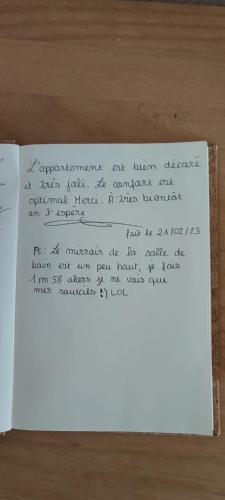 L'appartement est bien décoré
et très joli. Le confort est
optimal. Merci. À très bientôt
on l'espère
fait le 21/02/23
PS: Le miroir de la salle de
bain est un peu haut, je fais
1m58 alors je ne vois que
mes sourcils !) LOL